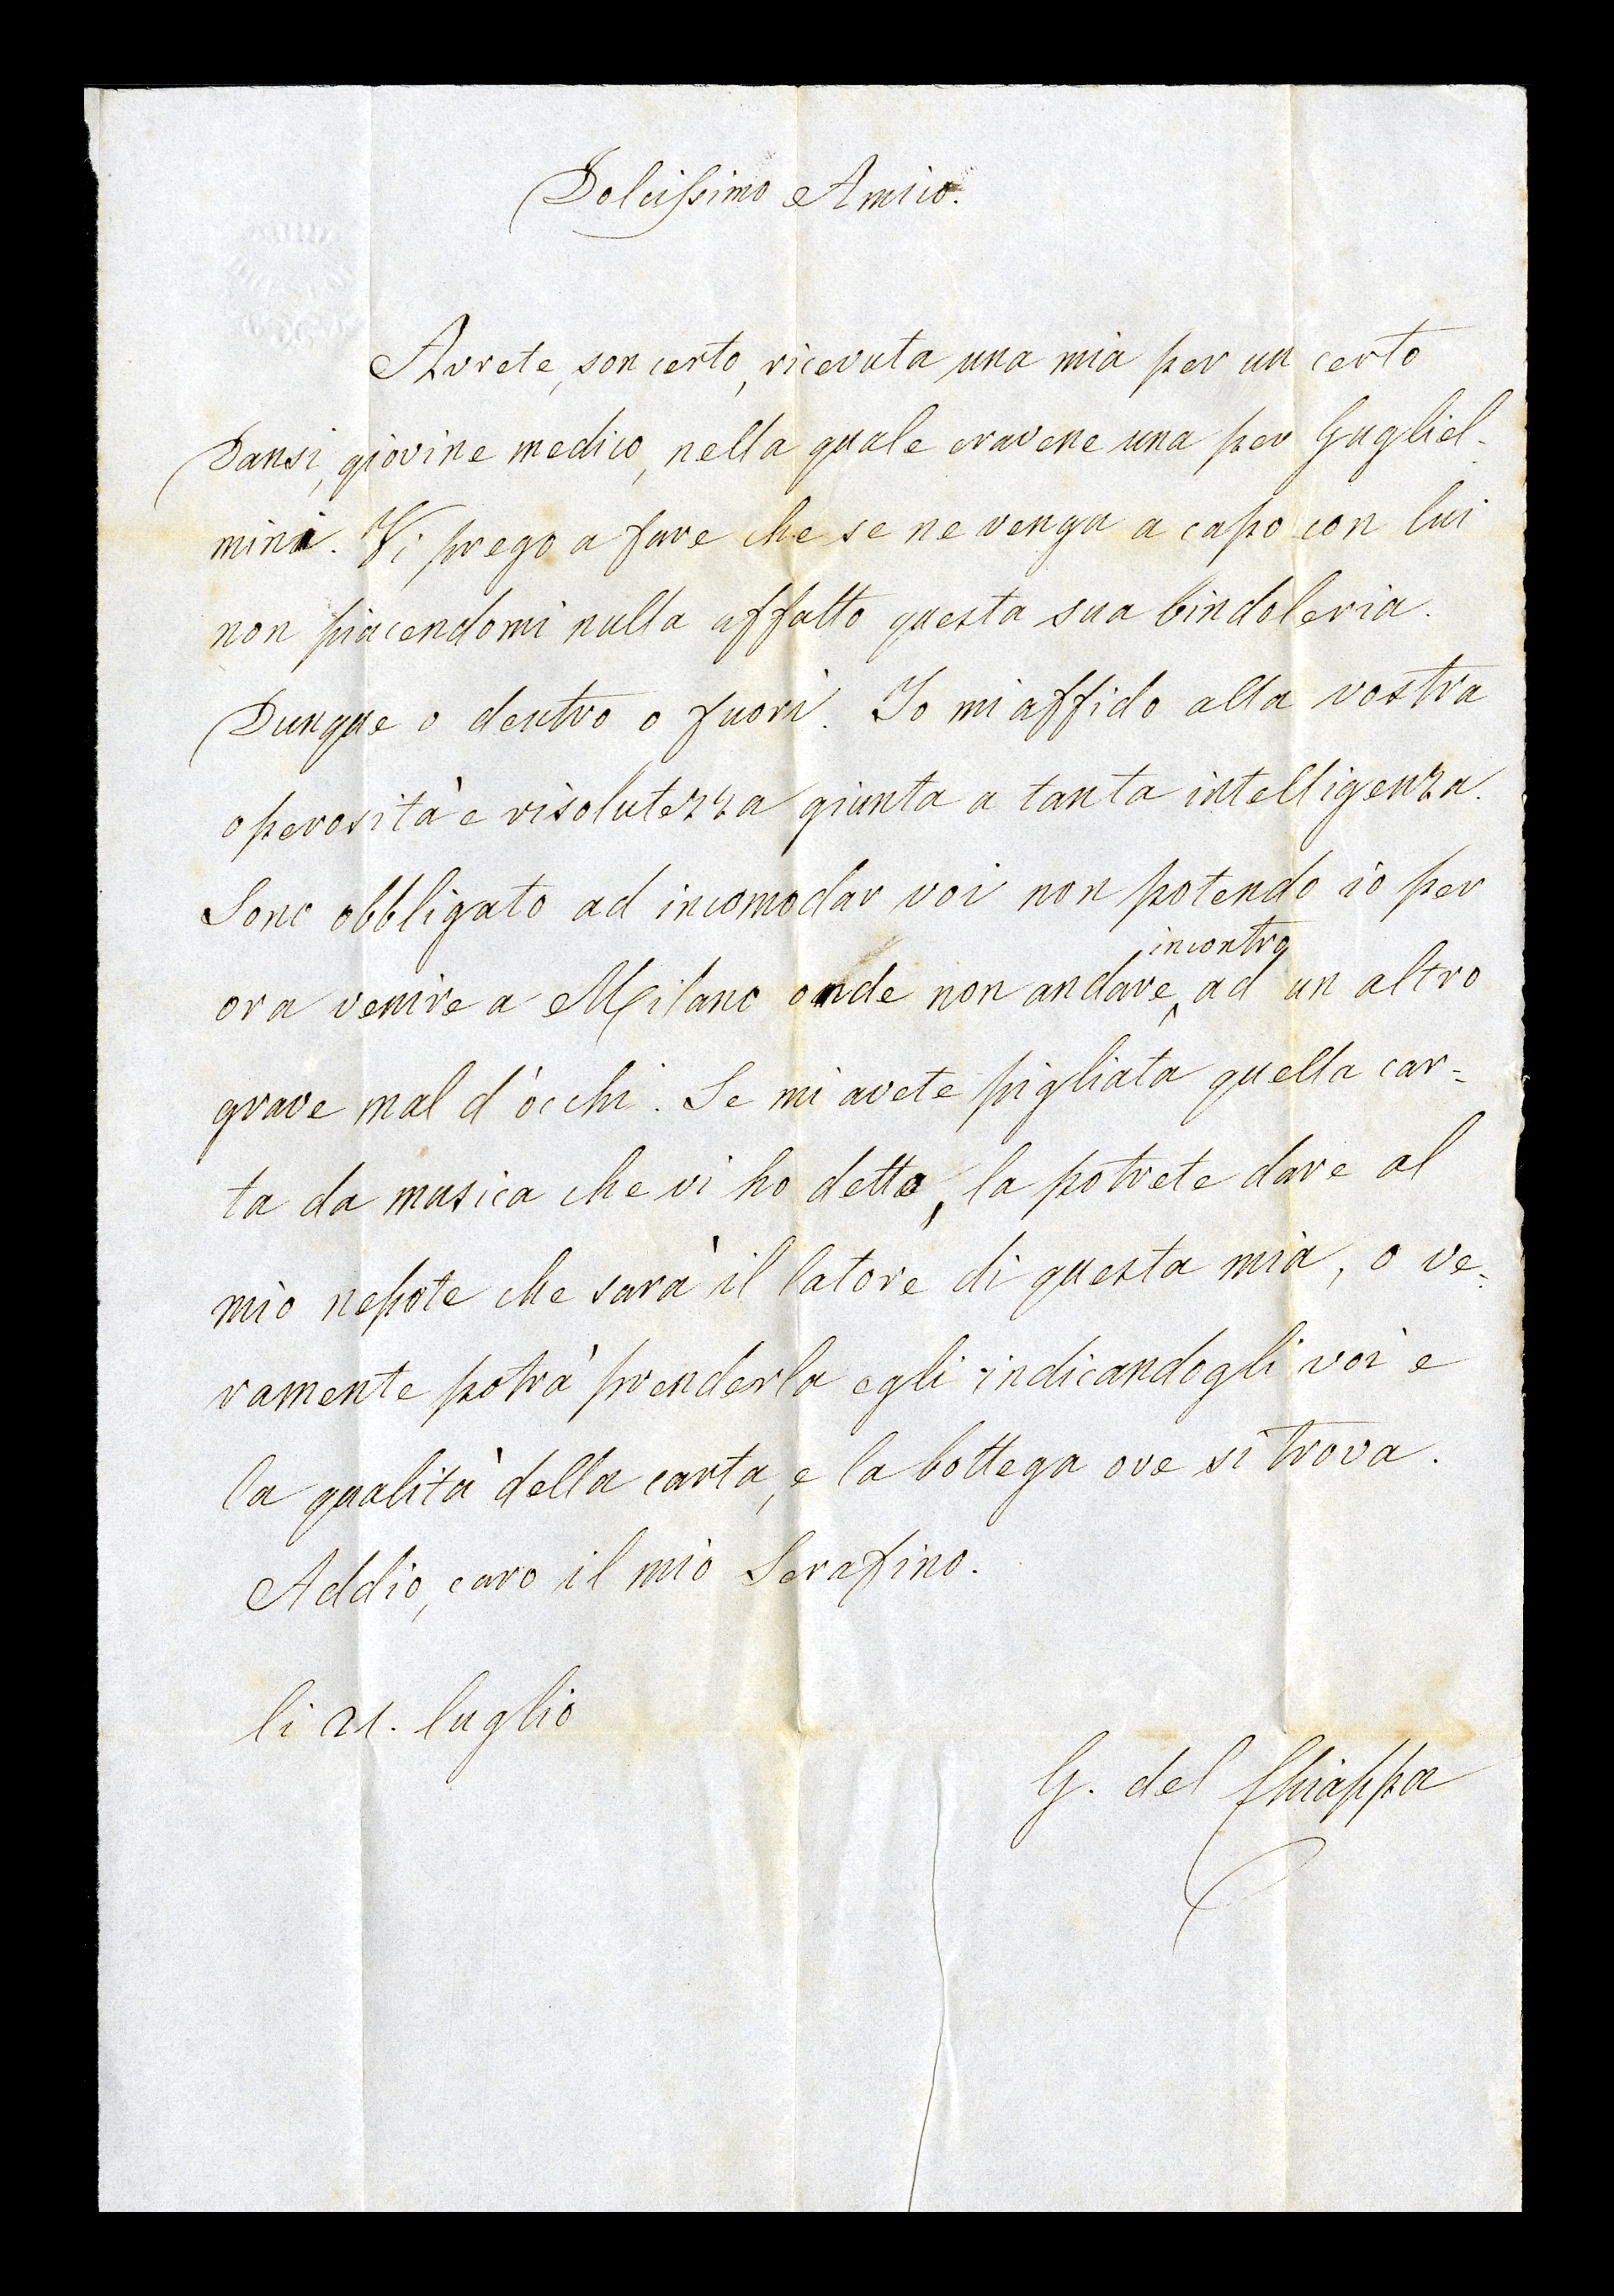 Dolcissimo Amico.
Avrete, son certo, ricevuta una mia per un certo
Dansi, giovine medico, nella quale eravene una per Gugliel-
mini. Vi prego a fare che se ne venga a capo con lui
non piacendomi nulla affatto questa sua bindoleria.
Dunque o dentro o fuori. Io mi affido alla vostra
operosità e risolutezza giunta a tanta intelligenza.
Sono obbligato ad incomodar voi non potendo io per
incontro
ora venire a Milano onde non andare ad un altro
grave mal d'occhi. Se mi avete pigliata quella car=
ta da musica che vi ho detto, la potrete dare al
mio nepote che sarà il latore di questa mia, o ve=
ramente potrà prenderla egli indicandogli voi e
la qualità della carta, e la bottega ove si trova.
Addio, caro il mio Serafino.
li 21. luglio
G. del Chiappa